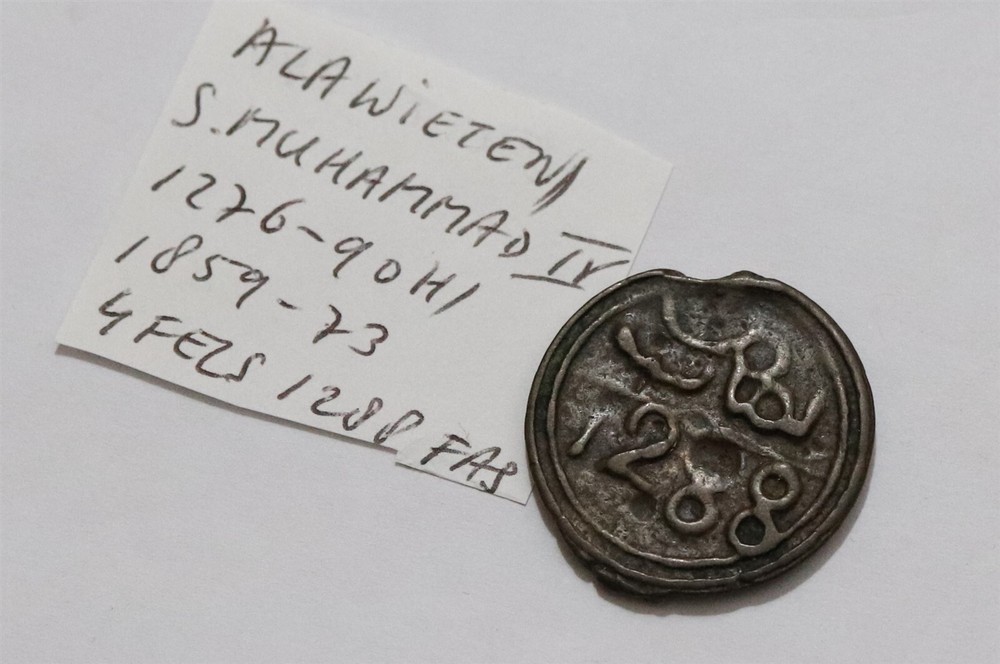 ALAWiETEN
S. MUHAMMAD IV
1276-90 H
1859-73
4 FELS 1288 FAS
1288